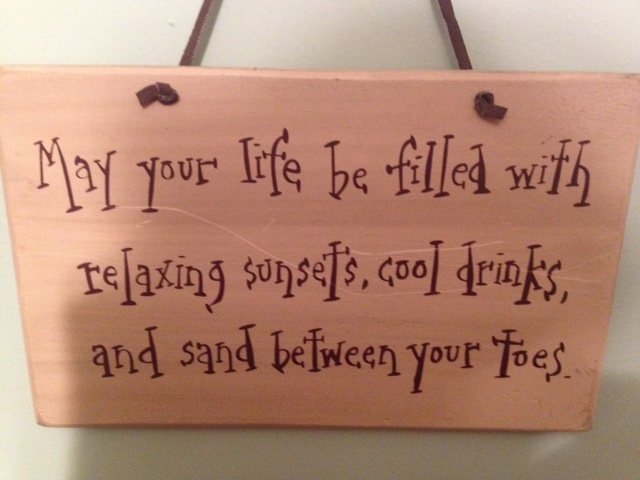 May your life be filled with
relaxing sunsets, cool drinks,
and sand between your toes.